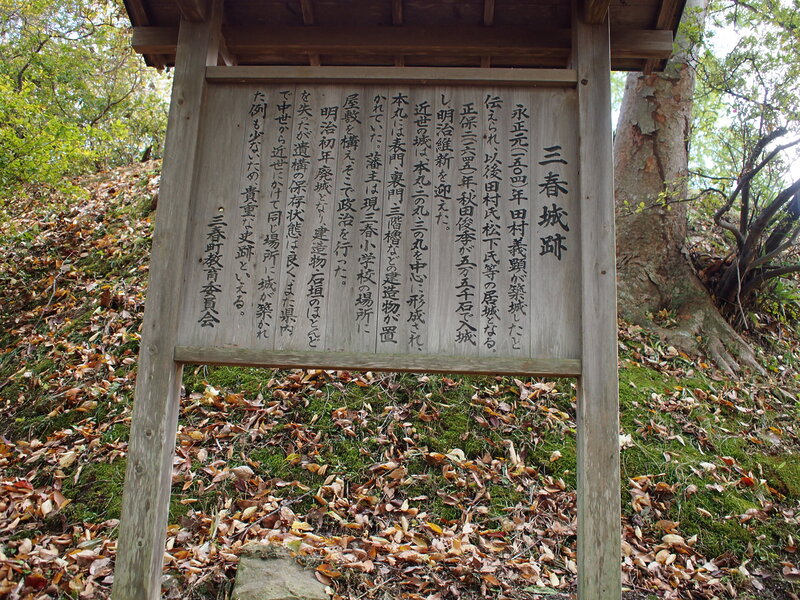 三春城跡
永正元(一五〇四)年田村義顕が築城したと
伝えられ、以後田村氏、松下氏等の居城となる。
正保二(一六四五)年、秋田俊季が五万五千石で入城
し、明治維新を迎えた。
近世の城は、本丸、二の丸、三の丸を中心に形成され、
本丸には表門、裏門、三階櫓などの建造物が置
かれていた。藩主は現三春小学校の場所に
屋敷を構え、そこで政治を行った。
明治初年、廃城となり、建造物、石垣のほとんど
を失ったが、遺構の保存状態は良く、また県内
で中世から近世にかけて同じ場所に城が築かれ
た例も少ないため貴重な史跡といえる。
三春町教育委員会